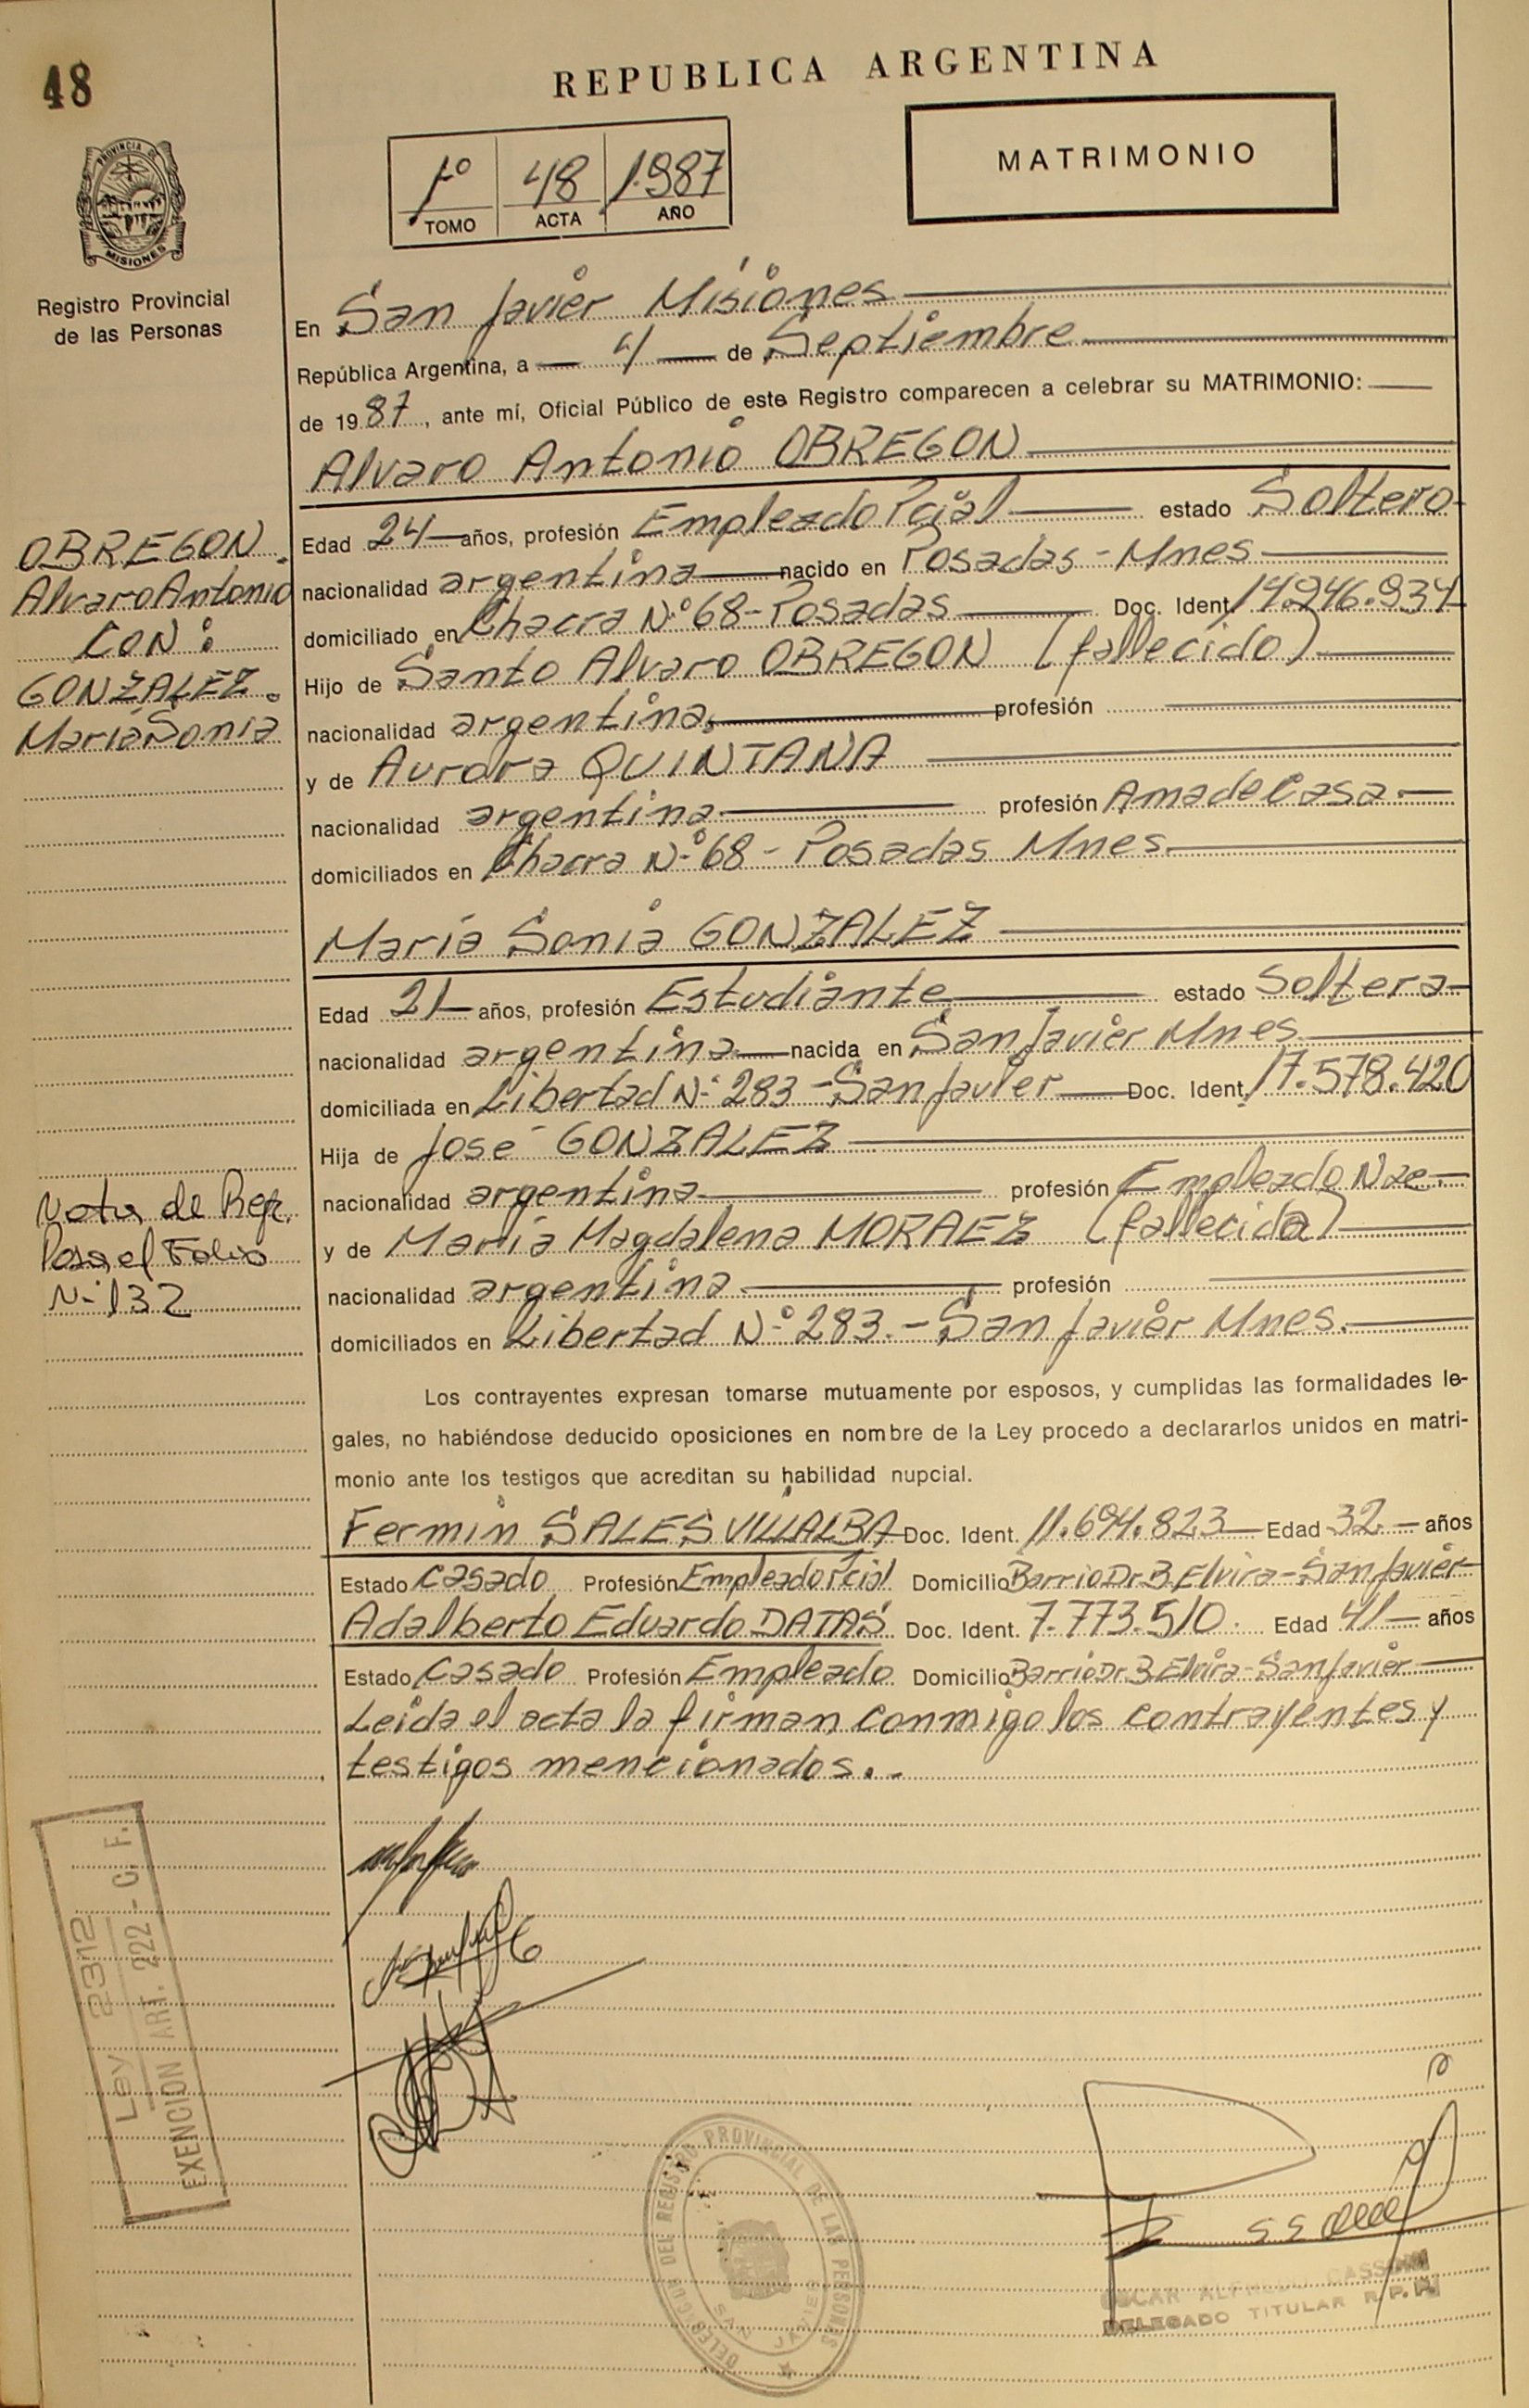 48
REPUBLICA ARGENTINA
PROVINCIA DE
MISIONES
Registro Provincial
de las Personas
1º 48 1.987
TOMO ACTA AÑO
MATRIMONIO
En San Javier Misiones
República Argentina, a 4 de Septiembre
de 1987, ante mí, Oficial Público de este Registro comparecen a celebrar su MATRIMONIO:
Alvaro Antonio OBREGON
Edad 24 años, profesión Empleado Pcial estado Soltero
nacionalidad argentina nacido en Posadas - Mnes
domiciliado en Chacra Nº 68 - Posadas Doc. Ident. 14.946.934
Hijo de Santo Alvaro OBREGON (fallecido)
nacionalidad argentina. profesión
y de Aurora QUINTANA
nacionalidad argentina profesión Ama de Casa
domiciliados en Chacra Nº 68 - Posadas Mnes.
María Sonia GONZALEZ
Edad 21 años, profesión Estudiante estado Soltera
nacionalidad argentina nacida en San Javier Mnes
domiciliada en Libertad Nº 283 - San Javier Doc. Ident. 17.578.420
Hija de José GONZALEZ
nacionalidad argentina profesión Empleado Nac.
y de María Magdalena MORAEZ (fallecida)
nacionalidad argentina profesión
domiciliados en Libertad Nº 283. - San Javier Mnes.
Los contrayentes expresan tomarse mutuamente por esposos, y cumplidas las formalidades le-
gales, no habiéndose deducido oposiciones en nombre de la Ley procedo a declararlos unidos en matri-
monio ante los testigos que acreditan su habilidad nupcial.
Fermin SALES VILLALBA Doc. Ident. 11.694.823 Edad 32 años
Estado Casado Profesión Empleado Pcial Domicilio Barrio Dr. B. Elvira - San Javier
Adalberto Eduardo DATAS Doc. Ident. 7.773.510. Edad 41 años
Estado Casado Profesión Empleado Domicilio Barrio Dr. B. Elvira - San Javier
Leída el acta la firman conmigo los contrayentes y
testigos mencionados. -
OBREGON
Alvaro Antonio
CON:
GONZALEZ.
María Sonia
Nota de Ref.
Pasa el Folio
Nº 132
Ley 2312
EXENCION ART. 222 - C. F.
DELEGACION DEL REGISTRO PROVINCIAL DE LAS PERSONAS
SAN JAVIER
OSCAR ALFREDO CASSONI
DELEGADO TITULAR R. P. P.